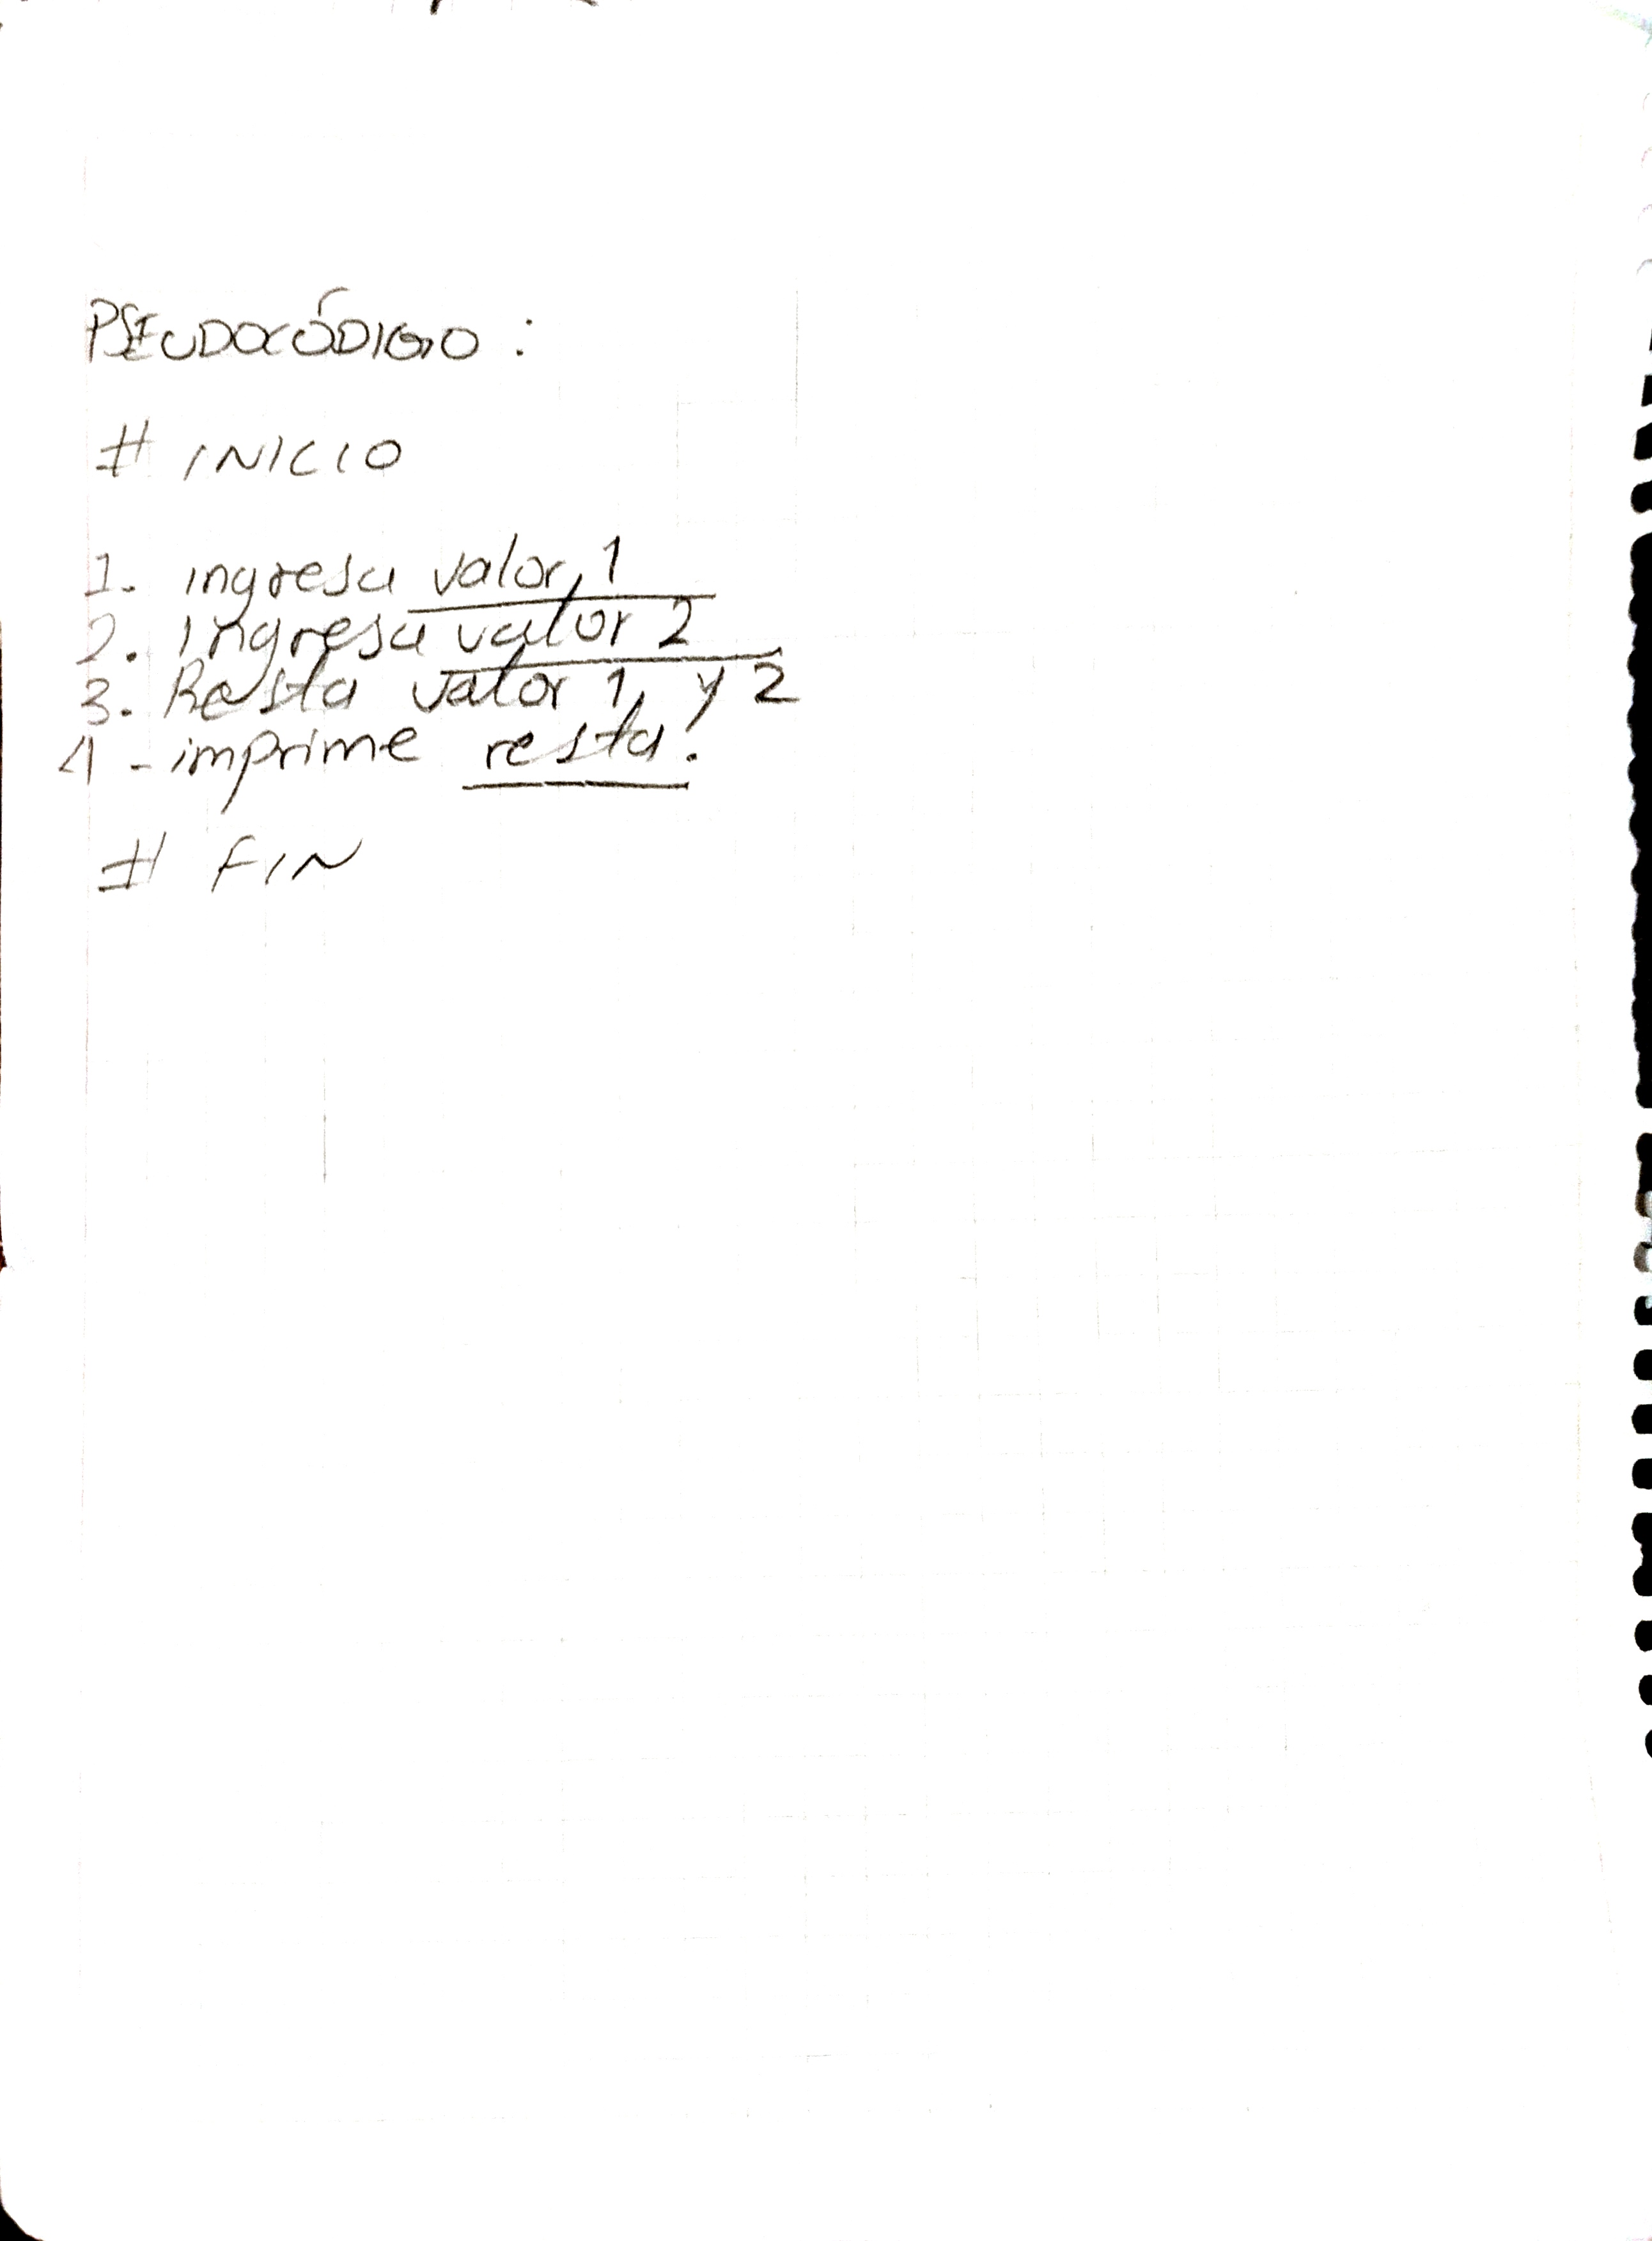 PSEUDOCÓDIGO :
# INICIO
1. ingresa valor, 1
2. Ingresa valor 2
3. Resta valor 1, y 2
4 - imprime resta.
# FIN